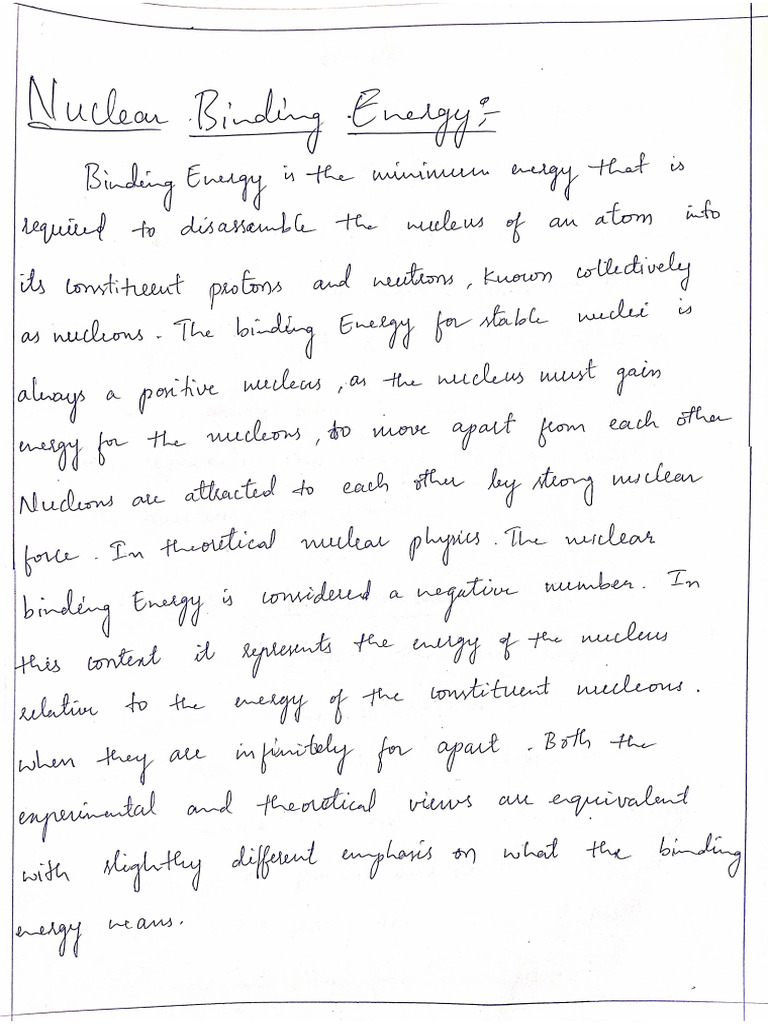 Nuclear Binding Energy:-
Binding Energy is the minimum energy that is
required to disassemble the nucleus of an atom into
its constituent protons and neutrons, known collectively
as nucleons. The binding Energy for stable nuclei is
always a positive nucleus, as the nucleus must gain
energy for the nucleons, to move apart from each other
Nucleons are attracted to each other by strong nuclear
force. In theoretical nuclear physics. The nuclear
binding Energy is considered a negative number. In
this context it represents the energy of the nucleus
relative to the energy of the constituent nucleons.
when they are infinitely far apart. Both the
experimental and theoretical views are equivalent
with slightly different emphasis on what the binding
energy means.